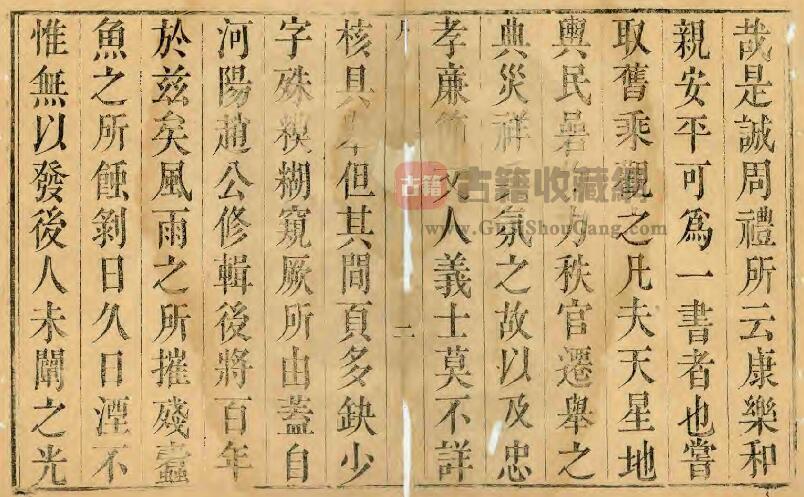 哉是誠周禮所云康樂和
親安平可爲一書者也嘗
取舊乘觀之凡夫天星地
輿民力秩官遷舉之
典災祥氛之故以及忠
孝廉節文人義士莫不詳
二
核具但其間頁多缺少
字殊糢糊窺厥所由蓋自
河陽趙公修輯後將百年
於茲矣風雨之所摧殘蠹
魚之所蝕剝日久日湮不
惟無以發後人未闡之光
古籍 古籍收藏網
www.GuJiShouCang.com